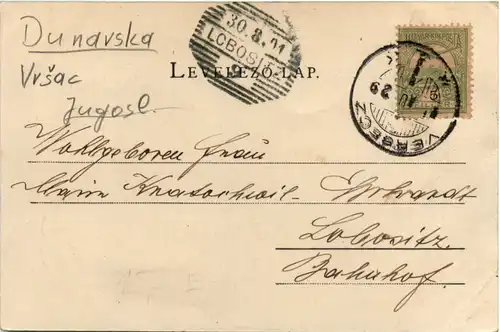 Dunavska
Vršac
Jugosl.
30.8.01
LOBOSITZ
LEVELEZŐ-LAP.
VERSECZ
Wohlgeboren Frau
Marie Kratochwil-Ehrhardt
Lobositz.
Bahnhof.